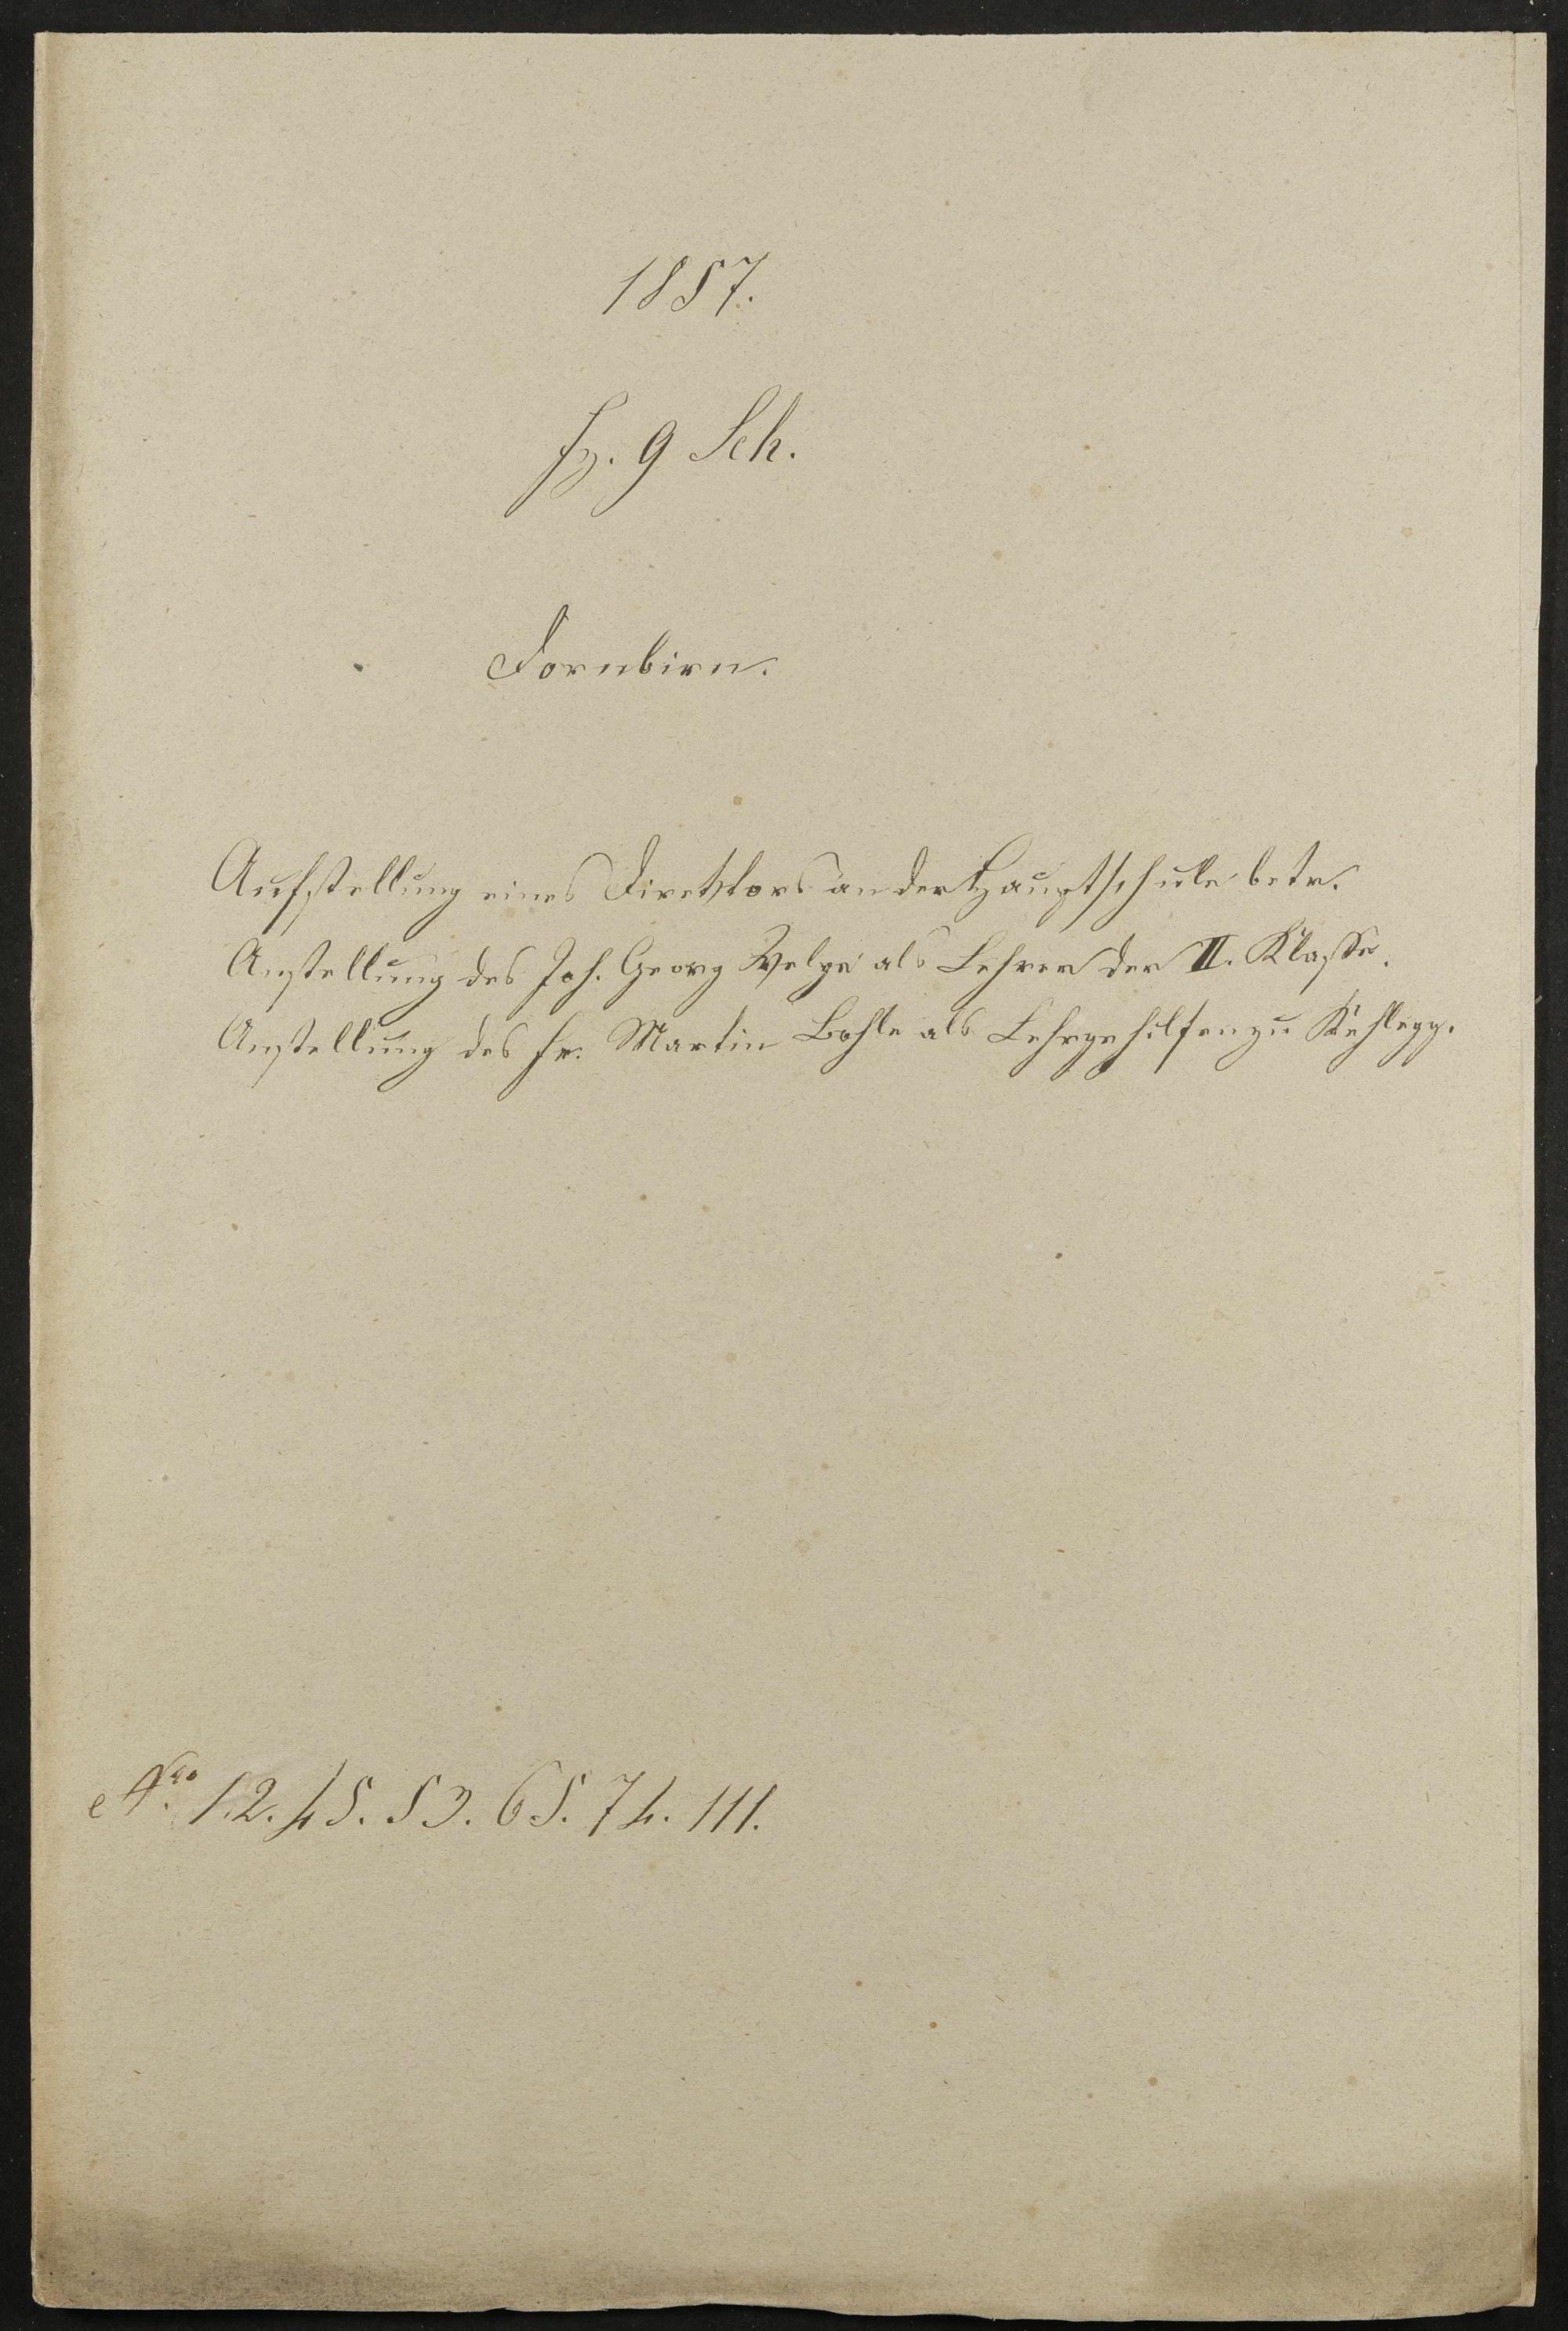 1857.
fz. 9 Sch.
Dornbirn.
Aufstellung eines Direktors an der Hauptschule betr.
Anstellung des Joh. Georg als Lehrer der II. Klasse.
Anstellung des Fr. Martin Bohle als Lehrgehilfen zu Kehlegg.
Nro 1.2. 45. 53. 65. 74. 111.